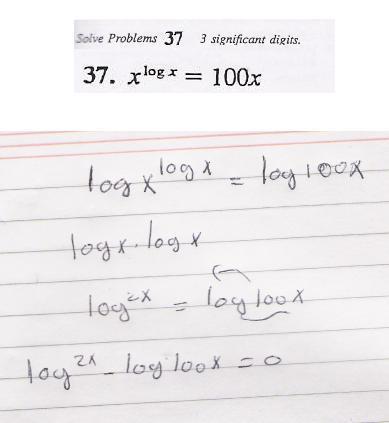 Solve Problems 37 3 significant digits.
37. x^log x = 100x
log x^log x = log 100x
log x · log x
log^2x = log 100x
log^2x - log 100x = 0